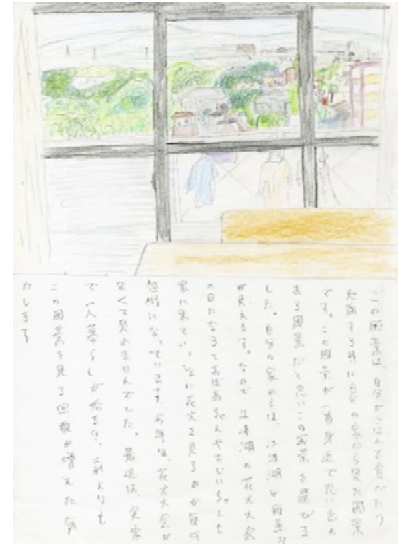 この風景は、自分がごはんを食べたり
勉強する時に自分の家から見た風景
です。この風景が一番身近で思い出の
ある風景だと思いこの風景を選びま
した。自分の家からは、江津湖の風景
が見えます。なので江津湖の花火大会
の日になるとおばあちゃんやおじいちゃんも
家に来ていっしょに花火を見るのが毎年
恒例になっています。今年は、花火大会が
なくて見れませんでした。最近は実家
で一人暮らしが始まり、前よりも
この風景を見る回数が増えた気
がします